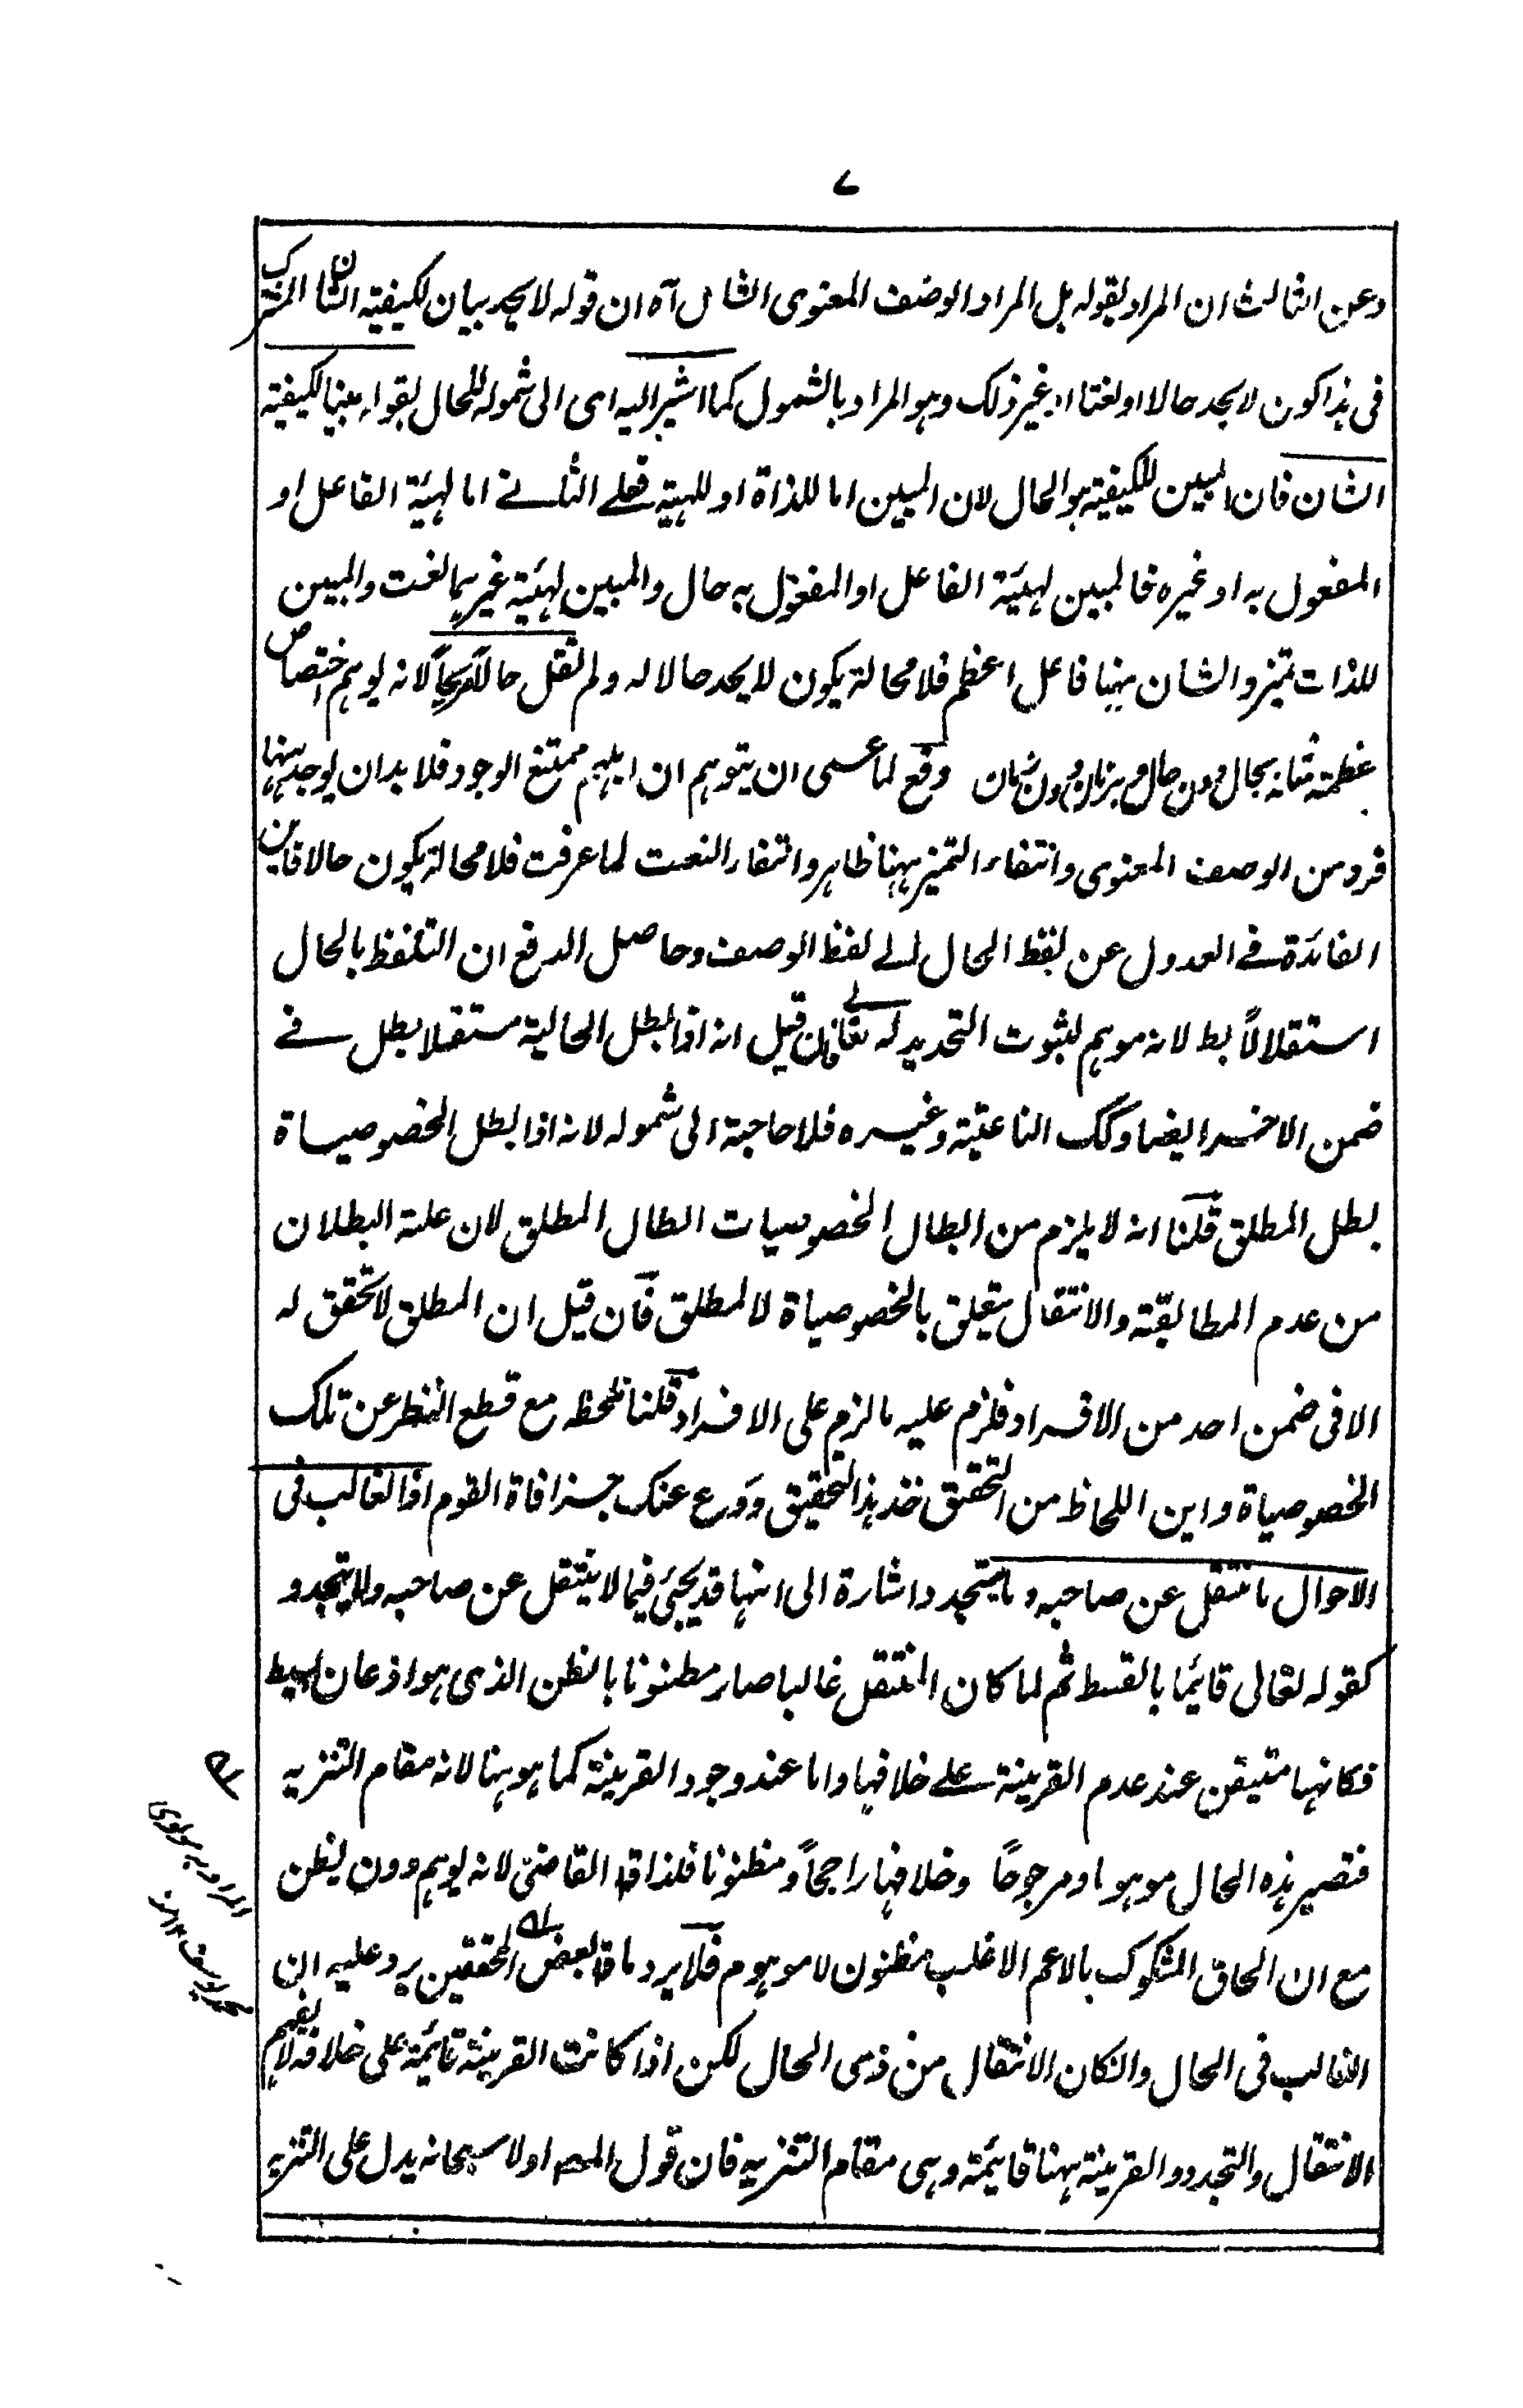 ٧
وعن الثالث ان المراد بقوله بل المراد الوصف المعنوى الشامل آه ان قوله لا يحد بيان لكيفية الشان المشترك
فى هذا كون لا يحد حالا او نعتا او غير ذلك وهو المراد بالشمول كما اشير اليه اى الى شموله للحال بقوله مبينا لكيفية
الشان فان المبين للكيفية هو الحال لان المبين اما للذاة او للهيئة فعلى الثانى اما لهيئة الفاعل او
المفعول به او غيره فالمبين لهيئة الفاعل او المفعول به حال والمبين لهيئة غيرهما نعت والمبين
للذات تميز والشان ههنا فاعل اعظم فلا محالة يكون لا يحد حالا له ولم نقل حالا صريحاً لانه يوهم اختصاص
عظمة شانه بحال دون حال و بزمان دون زمان دفع لما عسى ان يتوهم ان المبهم ممتنع الوجود فلا بد ان يوجد ههنا
فرد من الوصف المعنوى وانتفاء التميز ههنا ظاهر وانتفاء النعت لما عرفت فلا محالة يكون حالا فاين
الفائدة فى العدول عن لفظ الحال الى لفظ الوصف وحاصل الدفع ان التلفظ بالحال
استقلالاً بط لانه موهم لثبوت التحديد له تعالى فان قيل انه اذا بطل الحالية مستقلا بطل فى
ضمن الاخر ايضا وكك الناعتية وغيره فلا حاجة الى شموله لانه اذا بطل الخصوصياة
بطل المطلق قلنا انه لا يلزم من ابطال الخصوصيات ابطال المطلق لان علة البطلان
من عدم المطابقة والانتقال يتعلق بالخصوصياة لا المطلق فان قيل ان المطلق لا تحقق له
الا فى ضمن احد من الافراد فلزم عليه ما لزم على الافراد قلنا نلحظه مع قطع النظر عن تلك
الخصوصياة واين اللحاظ من التحقق خذ هذا التحقيق ودع عنك جزافاة القوم اذ الغالب فى
الاحوال ما تنتقل عن صاحبه وما يتجدد اشارة الى انها قد يجئ فيما لا ينتقل عن صاحبه ولا يتجدد
كقوله تعالى قائما بالقسط ثم لما كان المنتقل غالبا صار مظنونا بالظن الذى هو اذعان بسيط
فكانها متيقن عند عدم القرينة على خلافها واما عند وجود القرينة كما هو هنا لانه مقام التنزيه
فتصير هذه الحال موهوما و مرجوحاً وخلافها راجحاً و مظنونا فلذا قال القاضى لانه يوهم دون يظن
مع ان الحاق المشكوك بالاعم الاغلب مظنون لا موهوم فلا يرد ما قال بعض المحققين يرد عليه ان
الغالب فى الحال وان كان الانتقال من ذى الحال لكن اذا كانت القرينة قائمة على خلافه لا يفهم
الانتقال والتجدد والقرينة ههنا قائمة وهى مقام التنزيه فان قول المص اولا سبحانه يدل على التنزيه
المراد به مولوى